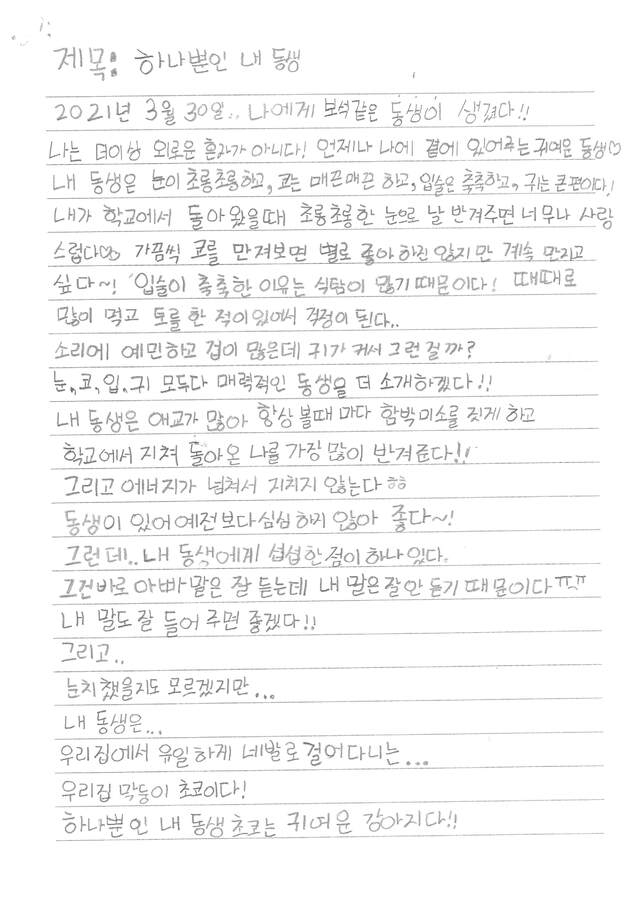 제목: 하나뿐인 내 동생
2021년 3월 30일.. 나에게 보석같은 동생이 생겼다!!
나는 더이상 외로운 혼자가 아니다! 언제나 나에 곁에 있어주는 귀여운 동생♡
내 동생은 눈이 초롱초롱하고, 코는 매끈매끈 하고, 입술은 축축하고, 귀는 큰편이다!
내가 학교에서 돌아왔을때 초롱초롱한 눈으로 날 반겨주면 너무나 사랑
스럽다♡♡ 가끔씩 코를 만져보면 별로 좋아하진 않지만 계속 만지고
싶다~! 입술이 축축한 이유는 식탐이 많기 때문이다! 때때로
많이 먹고 토를 한 적이 있어서 걱정이 된다..
소리에 예민하고 겁이 많은데 귀가 커서 그런걸까?
눈,코,입,귀 모두다 매력적인 동생을 더 소개하겠다!!
내 동생은 애교가 많아 항상 볼때 마다 함박미소를 짓게 하고
학교에서 지쳐 돌아온 나를 가장 많이 반겨준다!!
그리고 에너지가 넘쳐서 지치지 않는다ㅎㅎ
동생이 있어 예전보다 심심하지 않아 좋다~!
그런데.. 내 동생에게 섭섭한 점이 하나 있다.
그건바로 아빠 말은 잘 듣는데 내 말은 잘 안 듣기 때문이다ㅠㅠ
내 말도 잘 들어 주면 좋겠다!!
그리고..
눈치챘을지도 모르겠지만...
내 동생은...
우리집에서 유일하게 네발로 걸어다니는...
우리집 막둥이 초코이다!
하나뿐인 내 동생 초코는 귀여운 강아지다!!